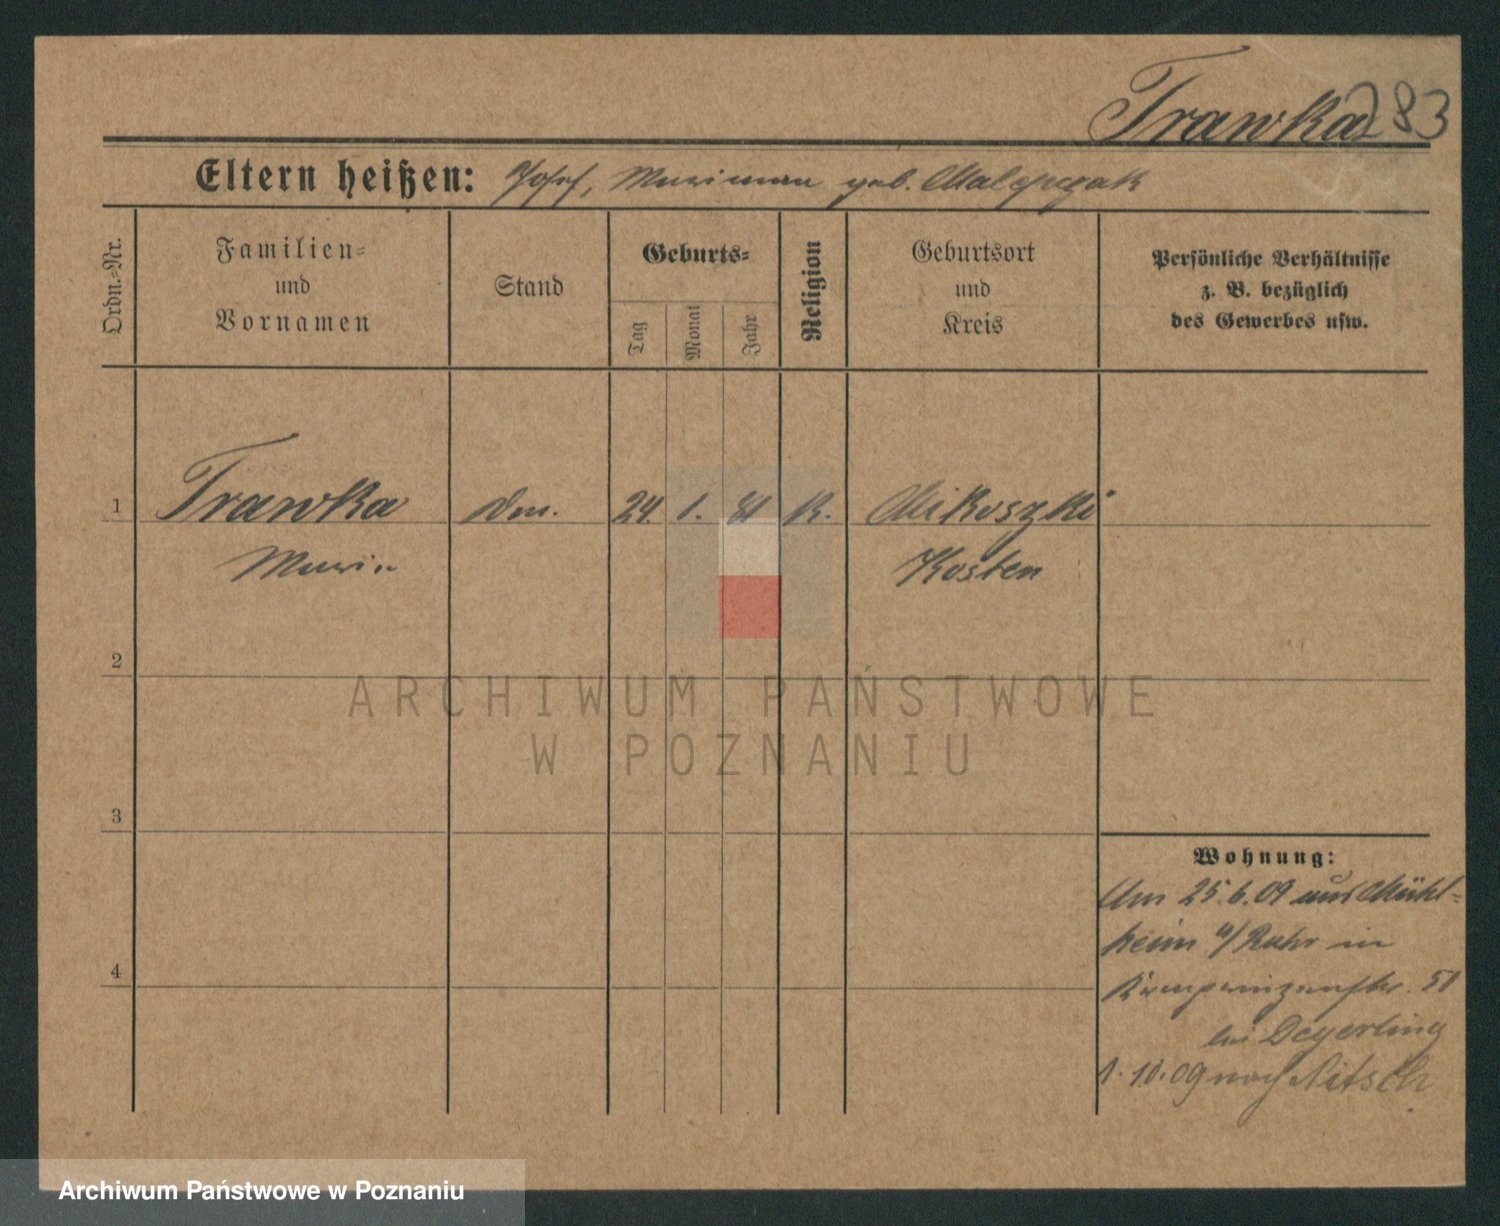 Trawka 283
Eltern heißen: Josef, Marianna geb.
Ordn.-Nr.
Familien-
und
Vornamen
Stand
Geburts-
Tag
Monat
Jahr
Religion
Geburtsort
und
Kreis
Persönliche Verhältnisse
z. B. bezüglich
des Gewerbes usw.
1 Trawka 24. 1. 81 K. Mikoszki
Marie Kosten
2
ARCHIWUM PAŃSTWOWE
W POZNANIU
3
Wohnung:
Am 25.6.09 aus Mühl-
heim a/Ruhr in
4
51
bei Deyerling
1.10.09 nach Nitsch
Archiwum Państwowe w Poznaniu